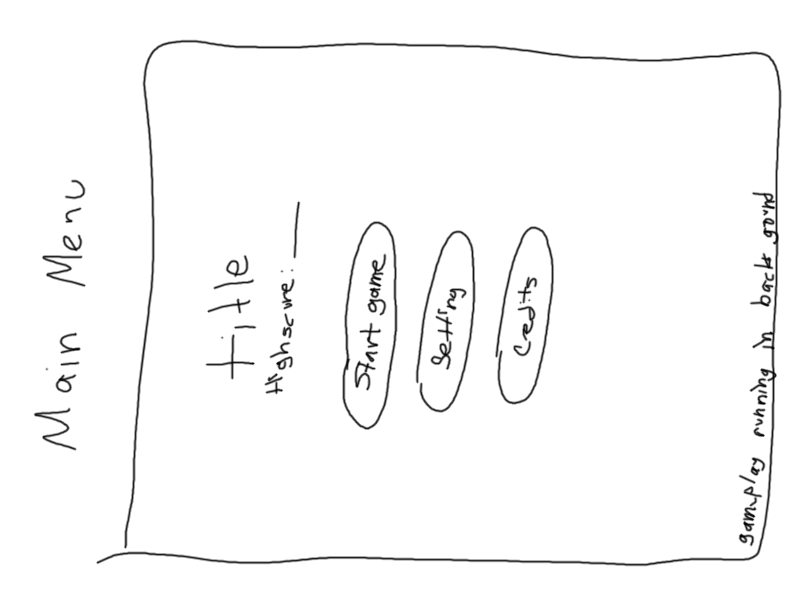 Main Menu
title
Highscore: ___
Start game
Setting
Credits
gameplay running in back gound